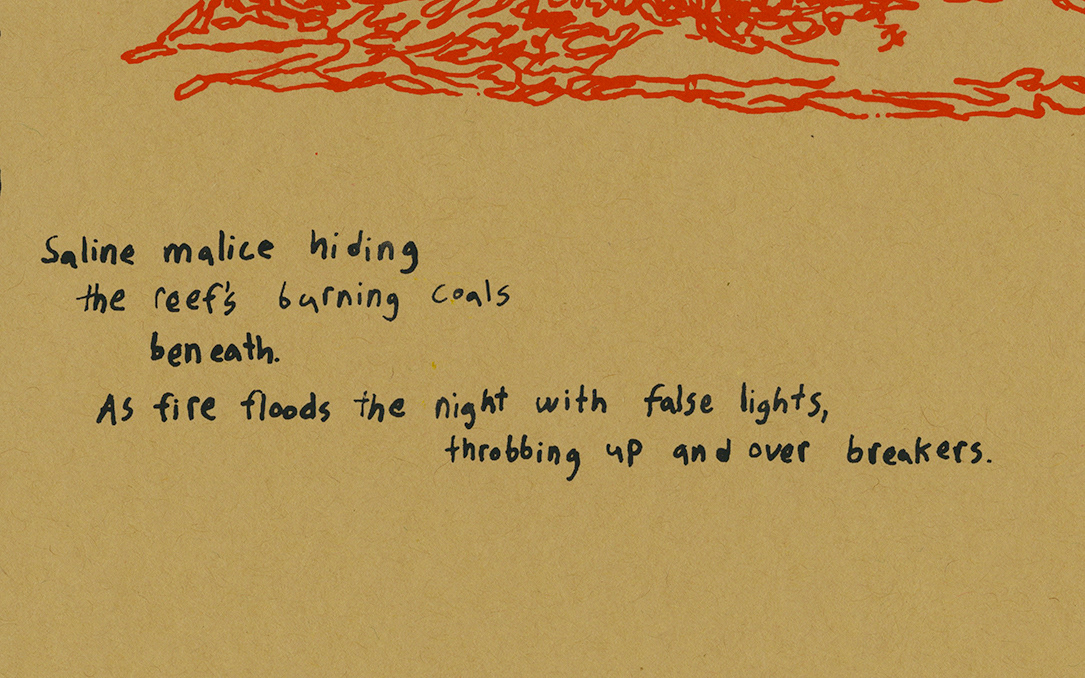 Saline malice hiding
the reef's burning coals
beneath.
As fire floods the night with false lights,
throbbing up and over breakers.